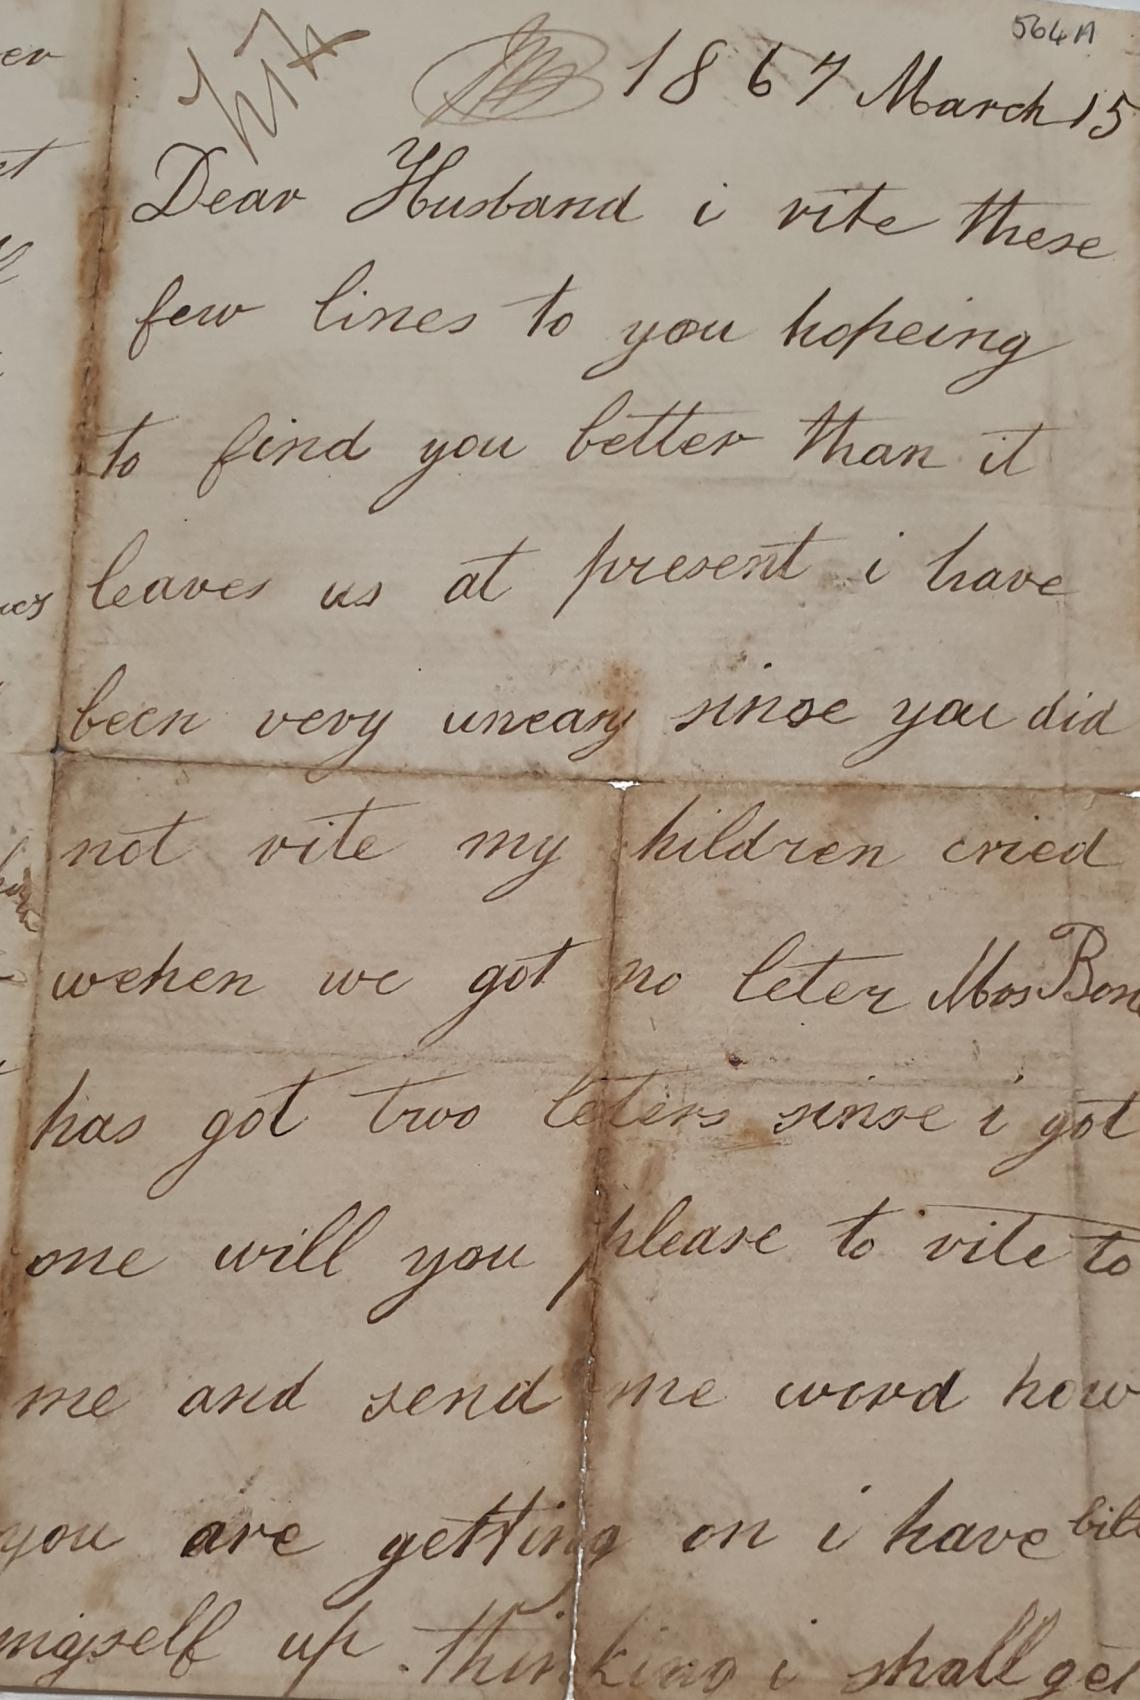 564A
1867 March 15
Dear Husband i rite these
few lines to you hopeing
to find you better than it
leaves us at present i have
been very uneasy sinse you did
not rite my hildren cried
wehen we got no leter Mos Bon
has got two leters sinse i got
one will you please to rite to
me and send me word how
you are getting on i have bilt
migself up thinking i shall get